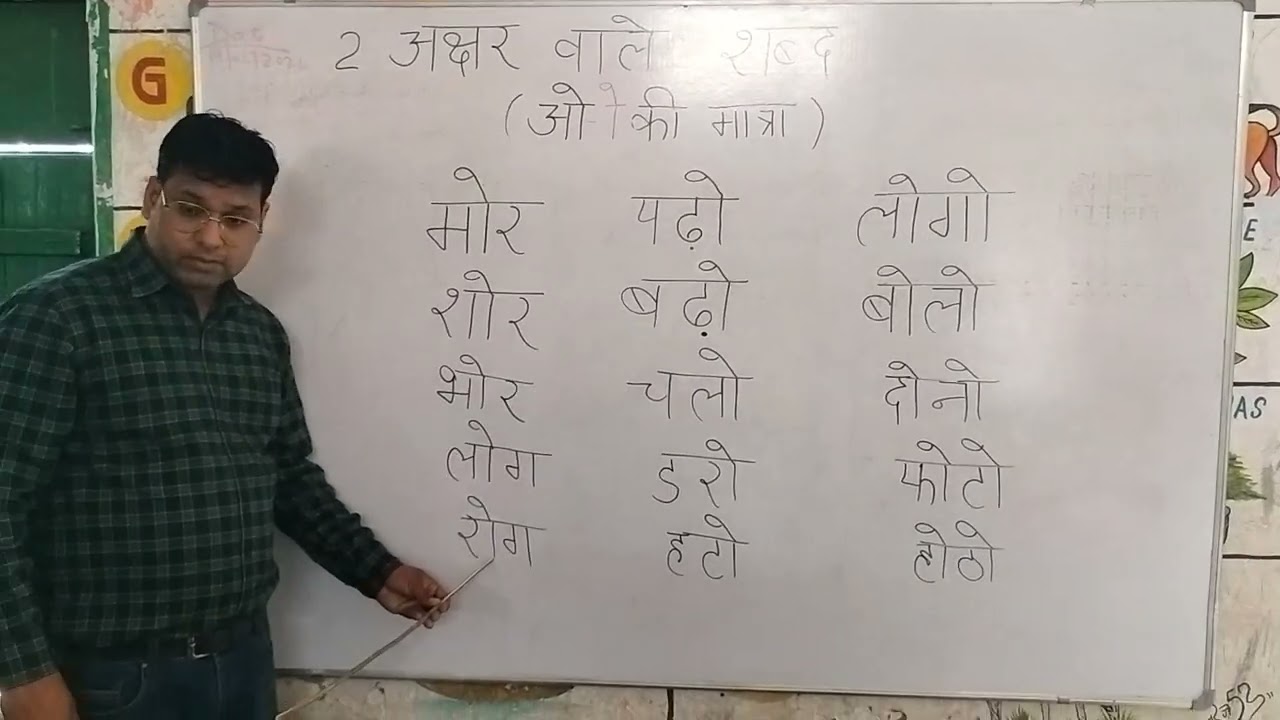 2 अक्षर वाले शब्द
(ओ-ो की मात्रा)
मोर पढ़ो लोगो
शोर बढ़ो बोलो
भोर चलो दोनो
लोग डरो फोटो
रोग हटो होठो
G
E
AS